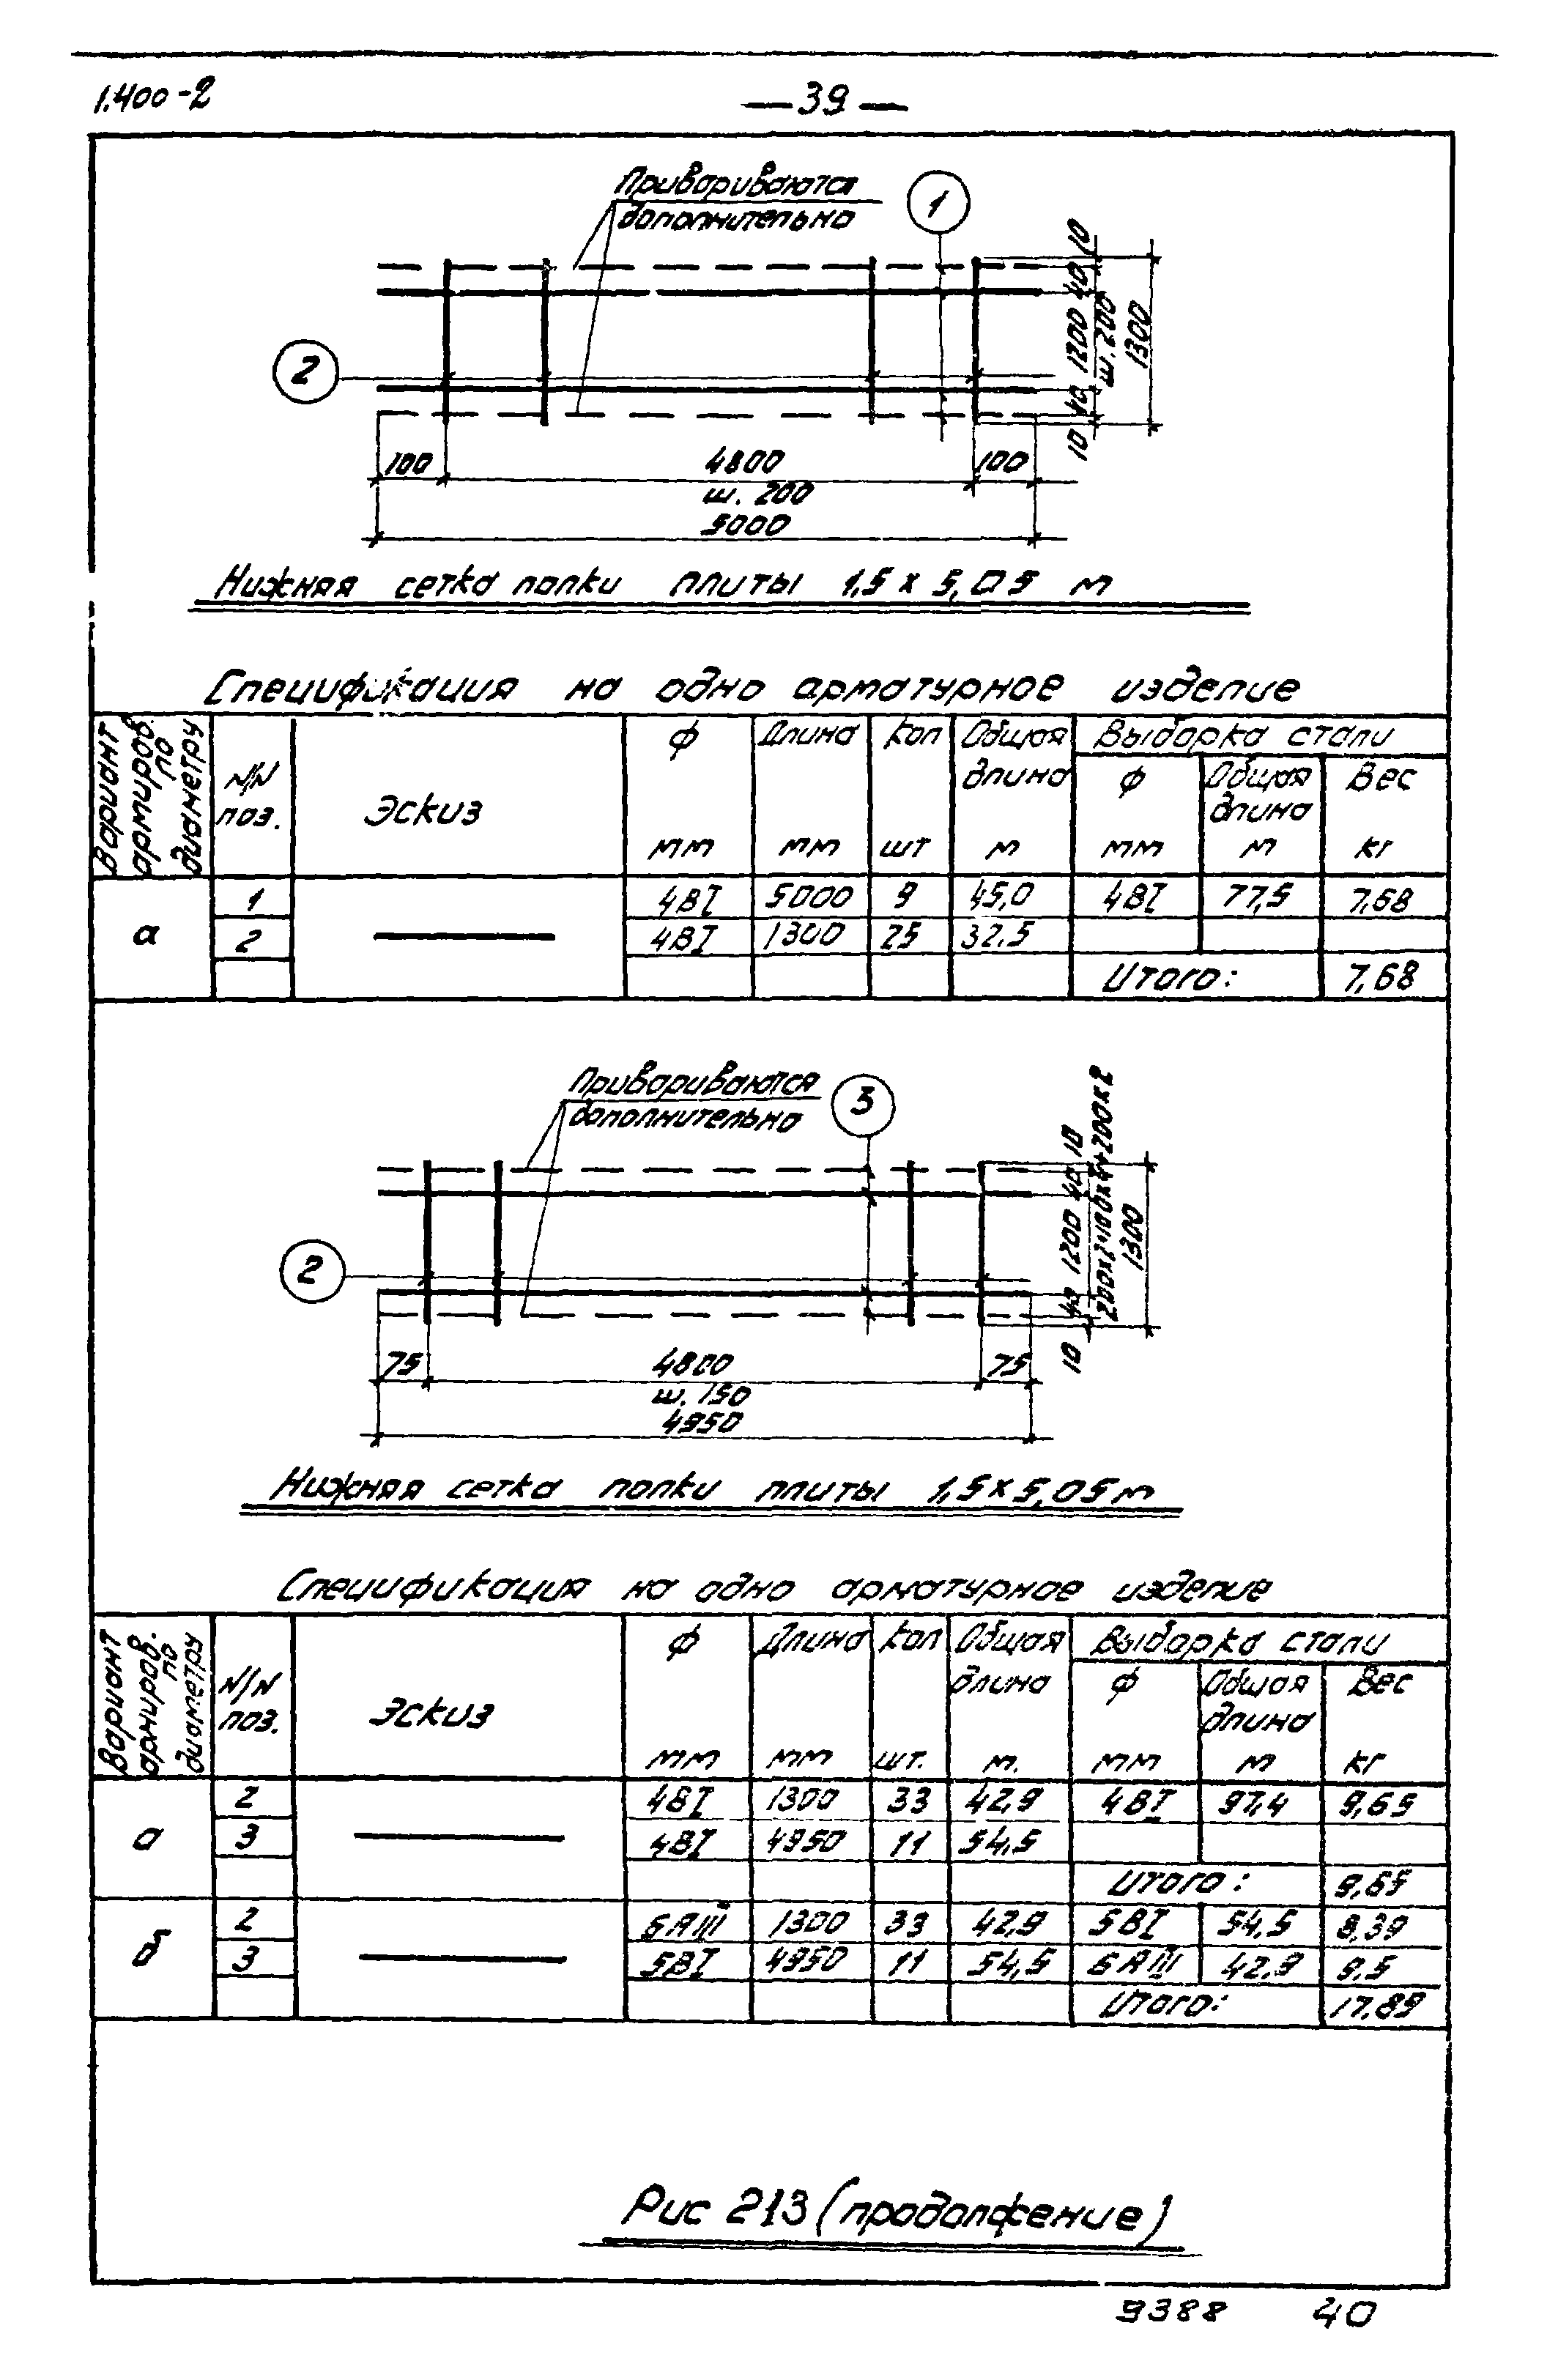 1.400-2
— 39 —
Привариваются
дополнительно
1
2
10
40
1200
ш. 200
40
10
1300
100
4800
100
ш. 200
5000
Нижняя сетка полки плиты 1,5 х 5,05 м
Спецификация на одно арматурное изделие
Вариант армиров. по диаметру
N/N поз.
Эскиз
ф мм
Длина мм
Кол шт
Общая длина м
Выборка стали
ф мм
Общая длина м
Вес кг
а
1 4ВI 5000 9 45,0 4ВI 77,5 7,68
2 4ВI 1300 25 32,5
Итого: 7,68
Привариваются
дополнительно
3
2
10
40
1200
200х2+100х4+200х2
40
10
1300
75
4800
75
ш. 150
4950
Нижняя сетка полки плиты 1,5х5,05м
Спецификация на одно арматурное изделие
Вариант армиров. по диаметру
N/N поз.
Эскиз
ф мм
Длина мм
Кол шт.
Общая длина м.
Выборка стали
ф мм
Общая длина м
Вес кг
а
2 4ВI 1300 33 42,9 4ВI 97,4 9,65
3 4ВI 4950 11 54,5
Итого: 9,65
б
2 6АIII 1300 33 42,9 5ВI 54,5 8,39
3 5ВI 4950 11 54,5 6АIII 42,9 9,5
Итого: 17,89
Рис 213 (продолжение)
9388 40